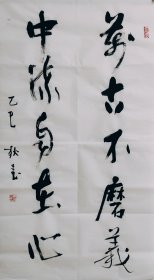 萬古不磨義
中流自在心
乙巳秋